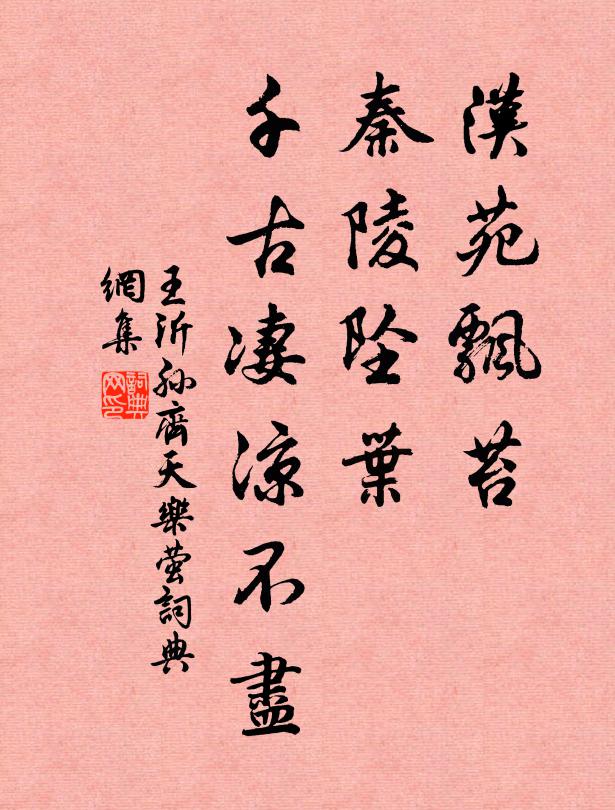 漢苑飄苔
秦陵墜葉
千古淒涼不盡
王沂孫齊天樂螢詞典
網集
詞典
网印